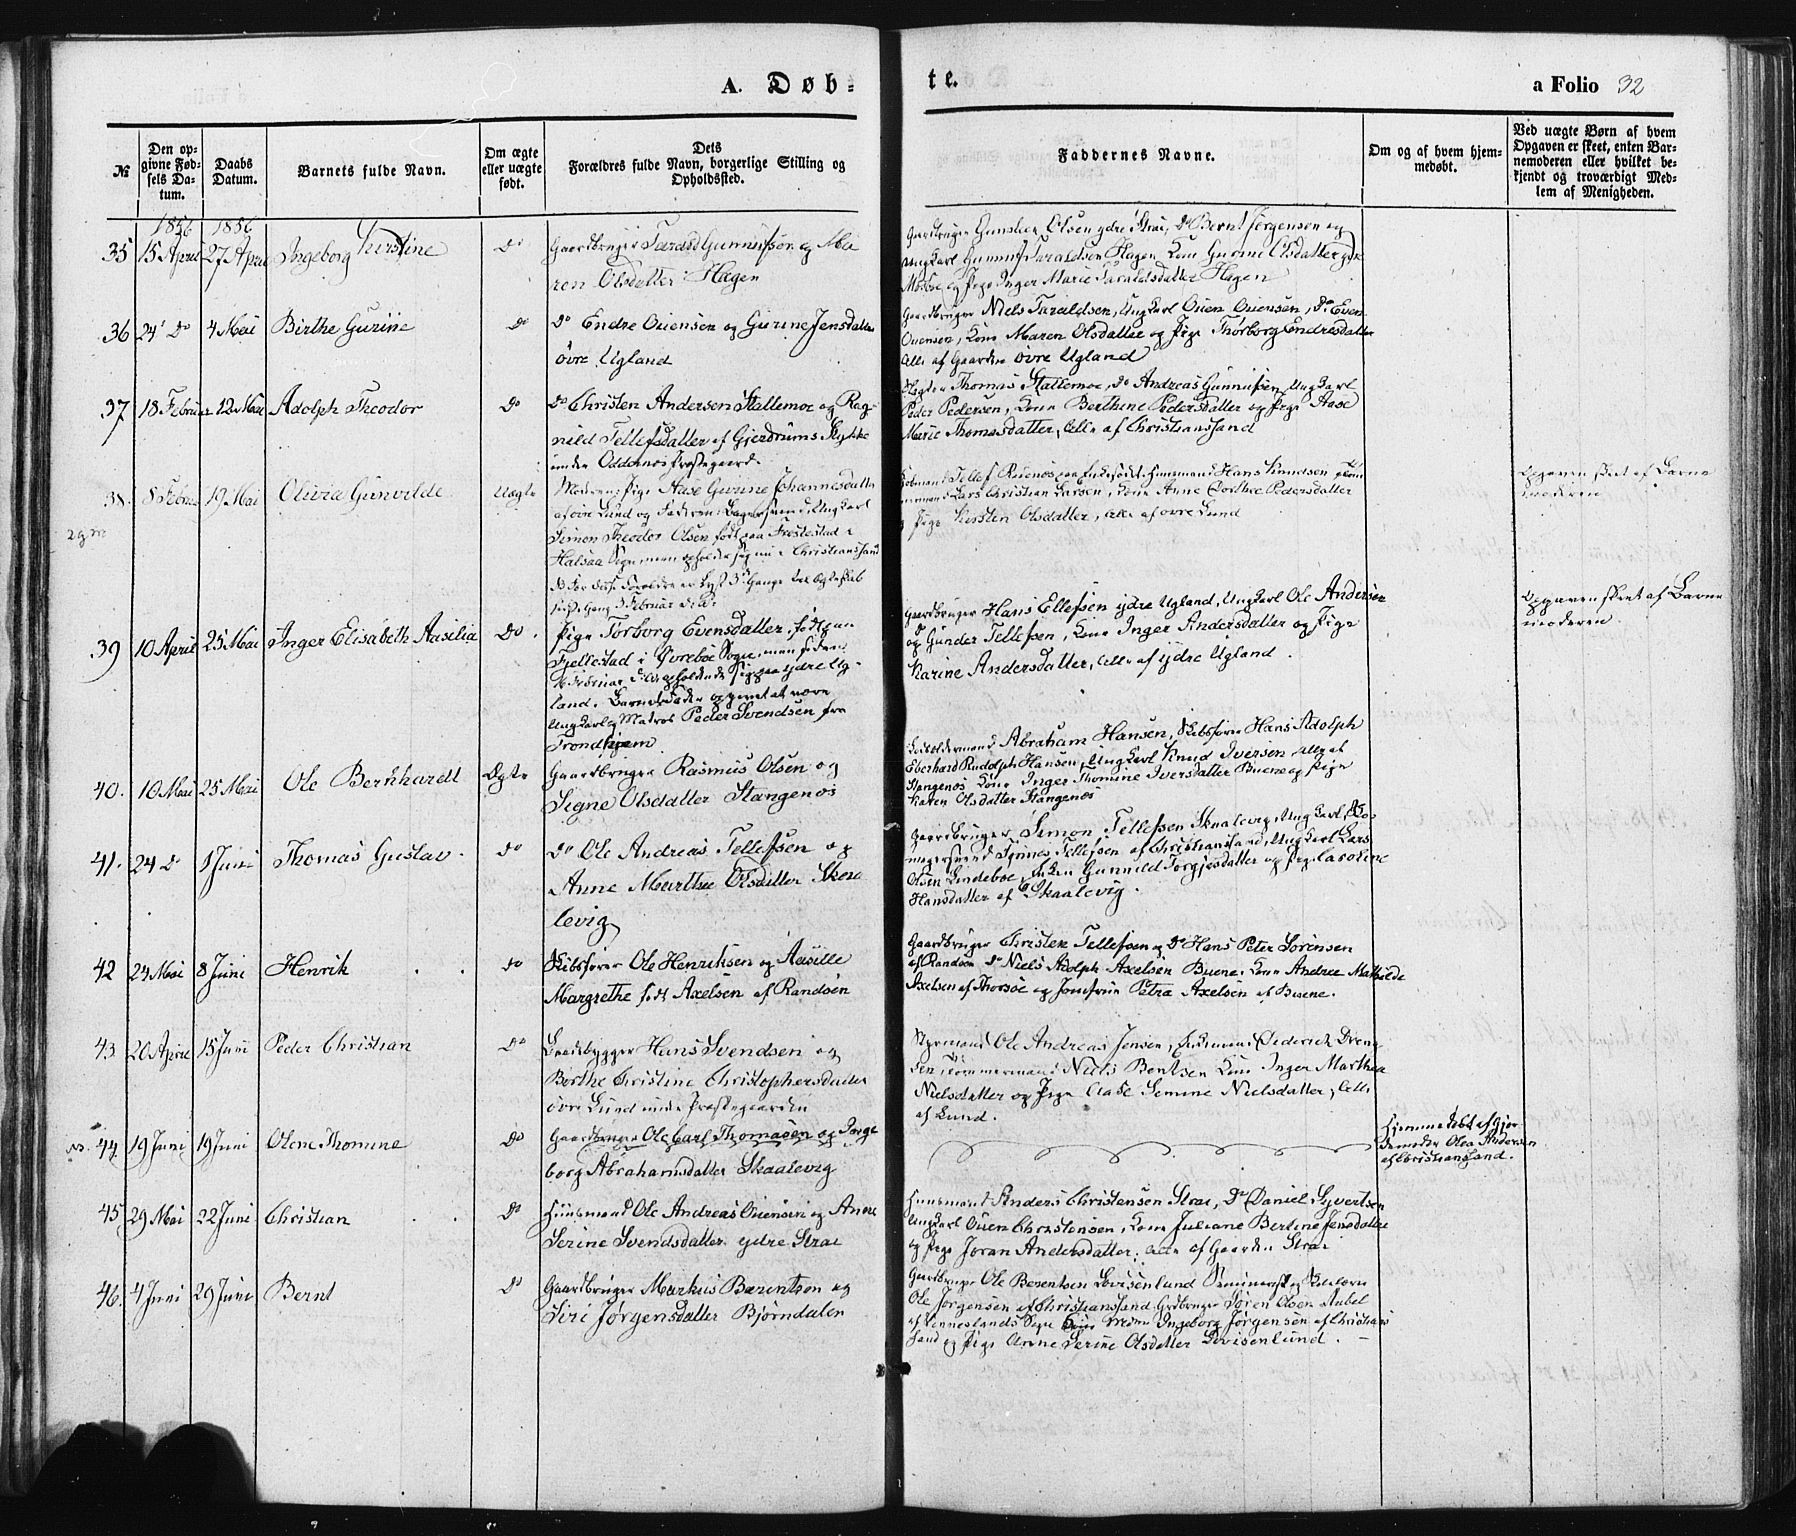 A. Døb-
te.
a Folio 32
№
Den opgivne Fødsels Datum.
Daabs Datum.
Barnets fulde Navn.
Om ægte eller uægte født.
Dets Forældres fulde Navn, borgerlige Stilling og Opholdssted.
Faddernes Navne.
Om og af hvem hjemmedøbt.
Ved uægte Børn af hvem Opgaven er skeet, enten Barnemoderen eller hvilket bekjendt og troværdigt Medlem af Menigheden.
1856 1856
35 15 April 27 April Ingeborg Kirstine Do
Gaardbruger Tarald Gunnufsen og Ma
ren Olsdatter Hagen
Gaardbruger Gunder Olsen ydre Strai, Do Bernt Jørgensen og
Ungkarl Gunnuf Taraldsen Hagen Kone Gurine Olsdatter
Mosbøe og Pige Inger Marie Taraldsdatter Hagen
36 24 Do 4 Mai Birthe Gurine Do
Do Endre Ouensen og Gurine Jensdatter
øvre Ugland
Gaardbruger Niels Taraldsen, Ungkarl Ouen Ouensen, Do Even
Ouensen, Kone Maren Olsdatter og Pige Thorborg Endresdatter
Alle af Gaarden øvre Ugland
37 18 Februar 12 Mai Adolph Theodor Do
Do Christen Andersen Stallemoe og Rag
nild Tellefsdatter af Gjerdrums Stykke
under Oddernes Præstegaard
Thomas Stallemoe, Do Andreas Gunnufsen, Ungkarl
Peder Pedersen, Kone Berthine Pedersdatter og Pige Aase
Marie Thomasdatter, Alle af Christianssand
38. 8 Februar 19 Mai Olivia Gunvilde Uægte
Moderen: Pige Aase Gurine Johannesdatter
af øvre Lund og Faderen: Ungkarl
Simon Theodor Olsen født paa Frøstestad i
Halsaa Sogn men opholder sig nu i Christianssand
Tellef Hans Knudsen
Lars Christian Larsen, Kone Anne Dorthe Pedersdatter
og Pige Kirsten Olsdatter, Alle af øvre Lund
Opgaven skeet af Barne
moderen
39 10 April 25 Mai Inger Elisabeth Aasilia Do.
Pige Torborg Evensdatter, født paa
Fjellestad i Øvrebøe Sogn, men siden
opholdende sig paa ydre Ug
land. Barnefader opgivet at være
Ungkarl og Matros Peder Svendsen fra
Trondhjem
Gaardbruger Hans Ellefsen ydre Ugland, Ungkarl Ole Andersen
og Do Gunder Tellefsen, Kone Inger Andersdatter og Pige
Karine Andersdatter, Alle af ydre Ugland.
Opgaven skeet af Barne
moderen
40. 10 Mai 25 Mai Ole Bernhardt Ægte
Gaardbruger Rasmus Olsen og
Signe Olsdatter Stangenæs
Abraham Hansen, Skibsfører Hans Adolph
Eberhard Rudolph Hansen, Ungkarl Knud Iversen alle af
Stangenæs Kone Inger Thomine Iversdatter Buene og Pige
Karen Olsdatter Stangenæs
41. 24 Do 1 Juni Thomas Gustav. Do
Do Ole Andreas Tellefsen og
Anne Marthe Olsdatter Skaa
levig
Gaardbruger Simon Tellefsen Skaalevig, Ungkarl, Sko
magersvend Tønnes Tellefsen af Christianssand, Ungkarl Lars
Olsen Lindebøe, Enken Gunnild Torgjusdatter og Pige Caroline
Hansdatter af Skaalevig.
42 24 Mai 8 Juni Henrik Do
Skibsfører Ole Henriksen og Aasille
Margrethe født Axelsen af Randøen
Gaardbruger Christen Tellefsen og Do Hans Peter Sørensen
af Randøen Do Niels Adolph Axelsen Buene, Kone Andrea Mathilde
Axelsen af Thorsøe og Jomfrue Petra Axelsen af Buene.
43 20 April 15 Juni Peder Christian Do
Baadebygger Hans Svendsen og
Berthe Christine Christophersdatter
øvre Lund under Præstegaarden
Styrmand Ole Andreas Jensen, Diderich
sen, Tømmermand Niels Bentsen Kone Inger Marthea
Nielsdatter og Pige Aase Semine Nielsdatter, Alle
af Lund.
44. 19 Juni 19 Juni Olene Thomine Do
Gaardbruger Ole Carl Thomasen og Torge
borg Abrahamsdatter Skaalevig
Hjemmedøbt af Gjor
demoder Olea Andersen
af Christianssand.
45 29 Mai 22 Juni Christian Do
Huusmand Ole Andreas Ouensen og Anne
Serine Svendsdatter ydre Strai
Huusmand Anders Christensen Strai, Do Daniel Syvertsen
Ungkarl Ouen Christensen, Kone Juliane Bertine Jensdatter
og Pige Joran Andersdatter, alle af Gaarden Strai
46. 4 Juni 29 Juni Bernt Do
Gaardbruger Markus Berentsen og
Siri Jørgensdatter Bjørndalen
Gaardbruger Ole Berentsen Lovisenlund Seminarist og
Ole Jørgensen af Christianssand Gaardbruger Søren Olsen Aabel
af Venneslands Sogn Ingeborg Jørgensen af Christians
sand og Pige Anne Serine Olsdatter Lovisenlund.